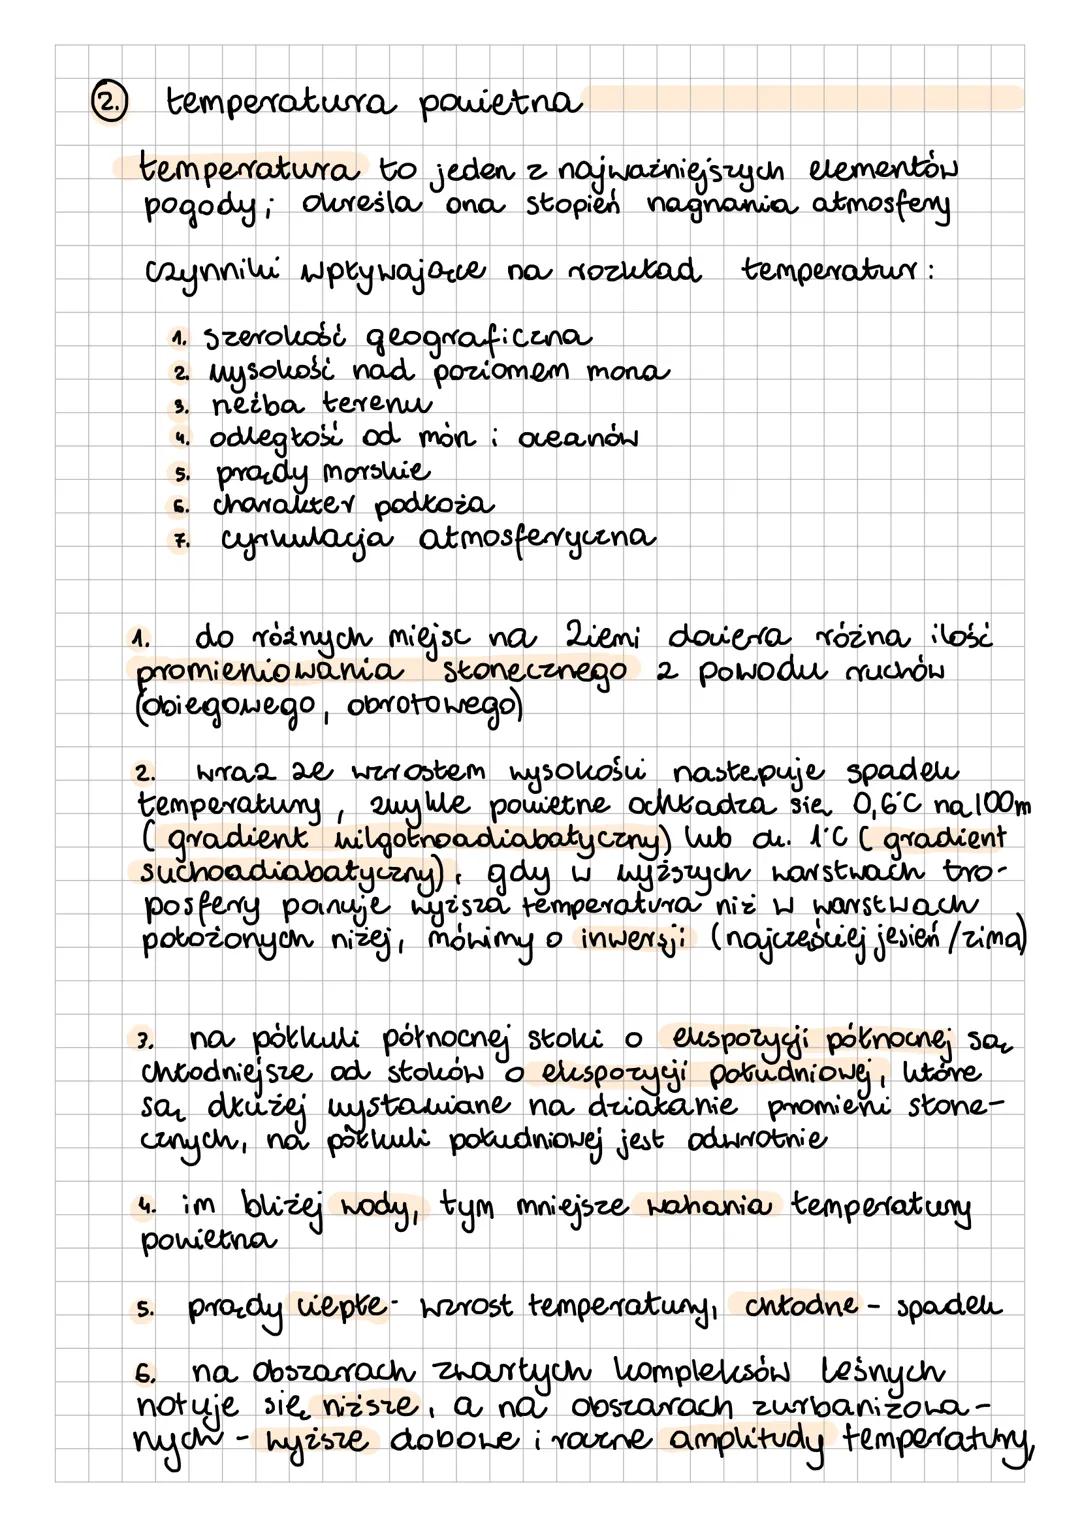 2. temperatura powietrza
temperatura to jeden z najważniejszych elementów
pogody; określa ona stopień nagrzania atmosfery
czynniki wpływające na rozkład temperatur:
1. szerokość geograficzna
2. wysokość nad poziomem morza
3. rzeźba terenu
4. odległość od mórz i oceanów
5. prądy morskie
6. charakter podłoża
7. cyrkulacja atmosferyczna
1. do różnych miejsc na Ziemi dociera różna ilość
promieniowania słonecznego z powodu ruchów
(obiegowego, obrotowego)
2. wraz ze wzrostem wysokości następuje spadek
temperatury, zwykle powietrze ochładza się 0,6°C na 100m
(gradient wilgotnoadiabatyczny) lub ok. 1°C (gradient
suchoadiabatyczny), gdy w wyższych warstwach tro-
posfery panuje wyższa temperatura niż w warstwach
położonych niżej, mówimy o inwersji (najczęściej jesień/zima)
3. na półkuli północnej stoki o ekspozycji północnej są
chłodniejsze od stoków o ekspozycji południowej, które
są dłużej wystawiane na działanie promieni słone-
cznych, na półkuli południowej jest odwrotnie
4. im bliżej wody, tym mniejsze wahania temperatury
powietrza
5. prądy ciepłe - wzrost temperatury, chłodne - spadek
6. na obszarach zwartych kompleksów leśnych
notuje się niższe, a na obszarach zurbanizowa-
nych - wyższe dobowe i roczne amplitudy temperatury,